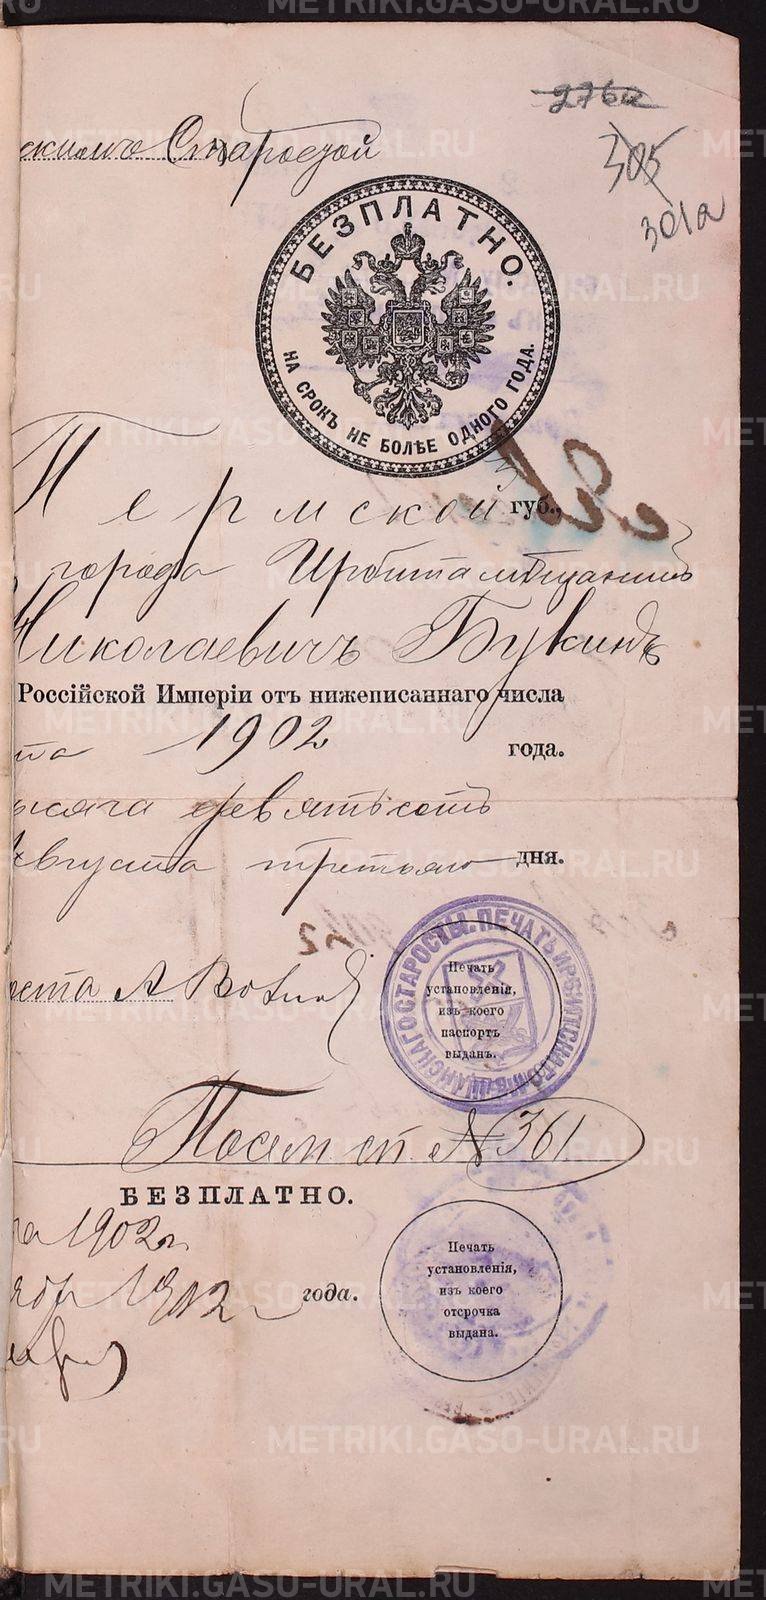 276а
305
301а
скимъ Старостой
БЕЗПЛАТНО.
НА СРОКЪ НЕ БОЛѢЕ ОДНОГО ГОДА.
Пермской губ.,
города Ирбита мѣщанинъ
Николаевичъ Букинъ
Россійской Имперіи отъ нижеписаннаго числа
та 1902 года.
ысяча девятьсотъ
Августа третьяго дня.
ПЕЧАТЬ ИРБИТСКАГО МѢЩАНСКАГО СТАРОСТЫ.
Печать
установленія,
изъ коего
паспортъ
выданъ.
оста А
№ 361
БЕЗПЛАТНО.
1902 г.
1902 года.
Печать
установленія,
изъ коего
отсрочка
выдана.
METRIKI.GASO-URAL.RU